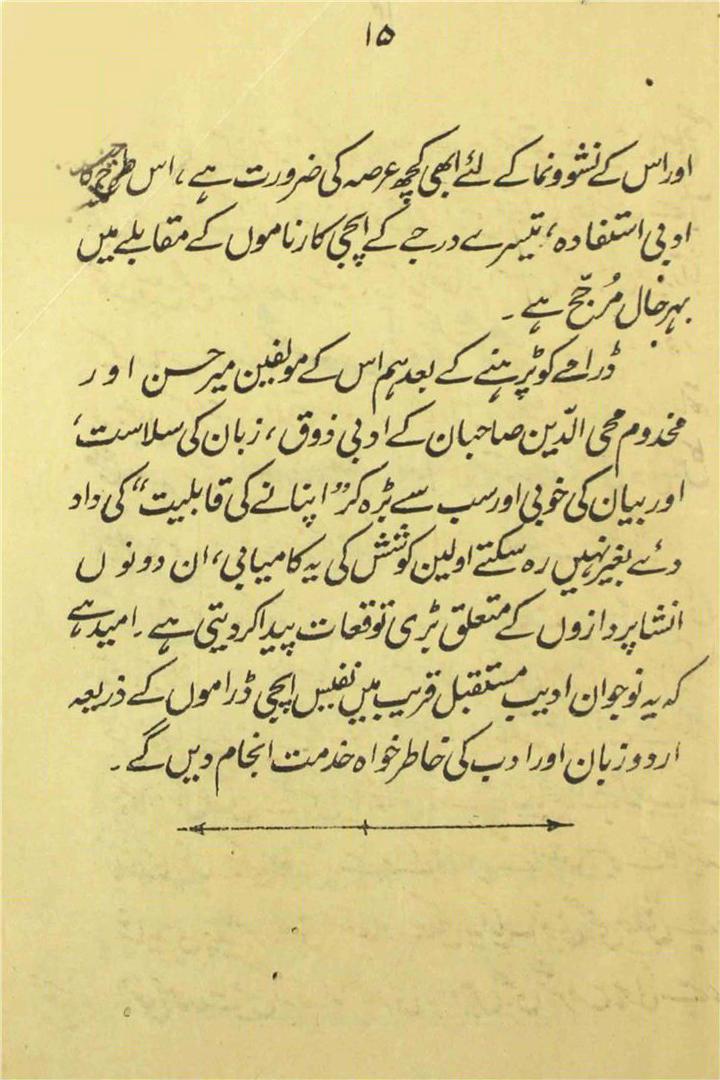 ۱۵
اور اس کے نشوونما کے لئے ابھی کچھ عرصہ کی ضرورت ہے، اس طرح کا
ادبی استفادہ، تیسرے درجے کے اپجی کارناموں کے مقابلے میں
بہرحال مُرجّح ہے ۔
ڈرامے کو پڑہنے کے بعد ہم اس کے مولفین میر حسن اور
مخدوم محی الدّین صاحبان کے ادبی ذوق، زبان کی سلاست،
اور بیان کی خوبی اور سب سے بڑہ کر "اپنانے کی قابلیت" کی داد
دئے بغیر نہیں رہ سکتے اولین کوشش کی یہ کامیابی، ان دونوں
انشاپردازوں کے متعلق بڑی توقعات پیدا کر دیتی ہے ۔ امید ہے
کہ یہ نوجوان ادیب مستقبل قریب میں نفیس اپجی ڈراموں کے ذریعہ
اردو زبان اور ادب کی خاطر خواہ خدمت انجام دیں گے ۔